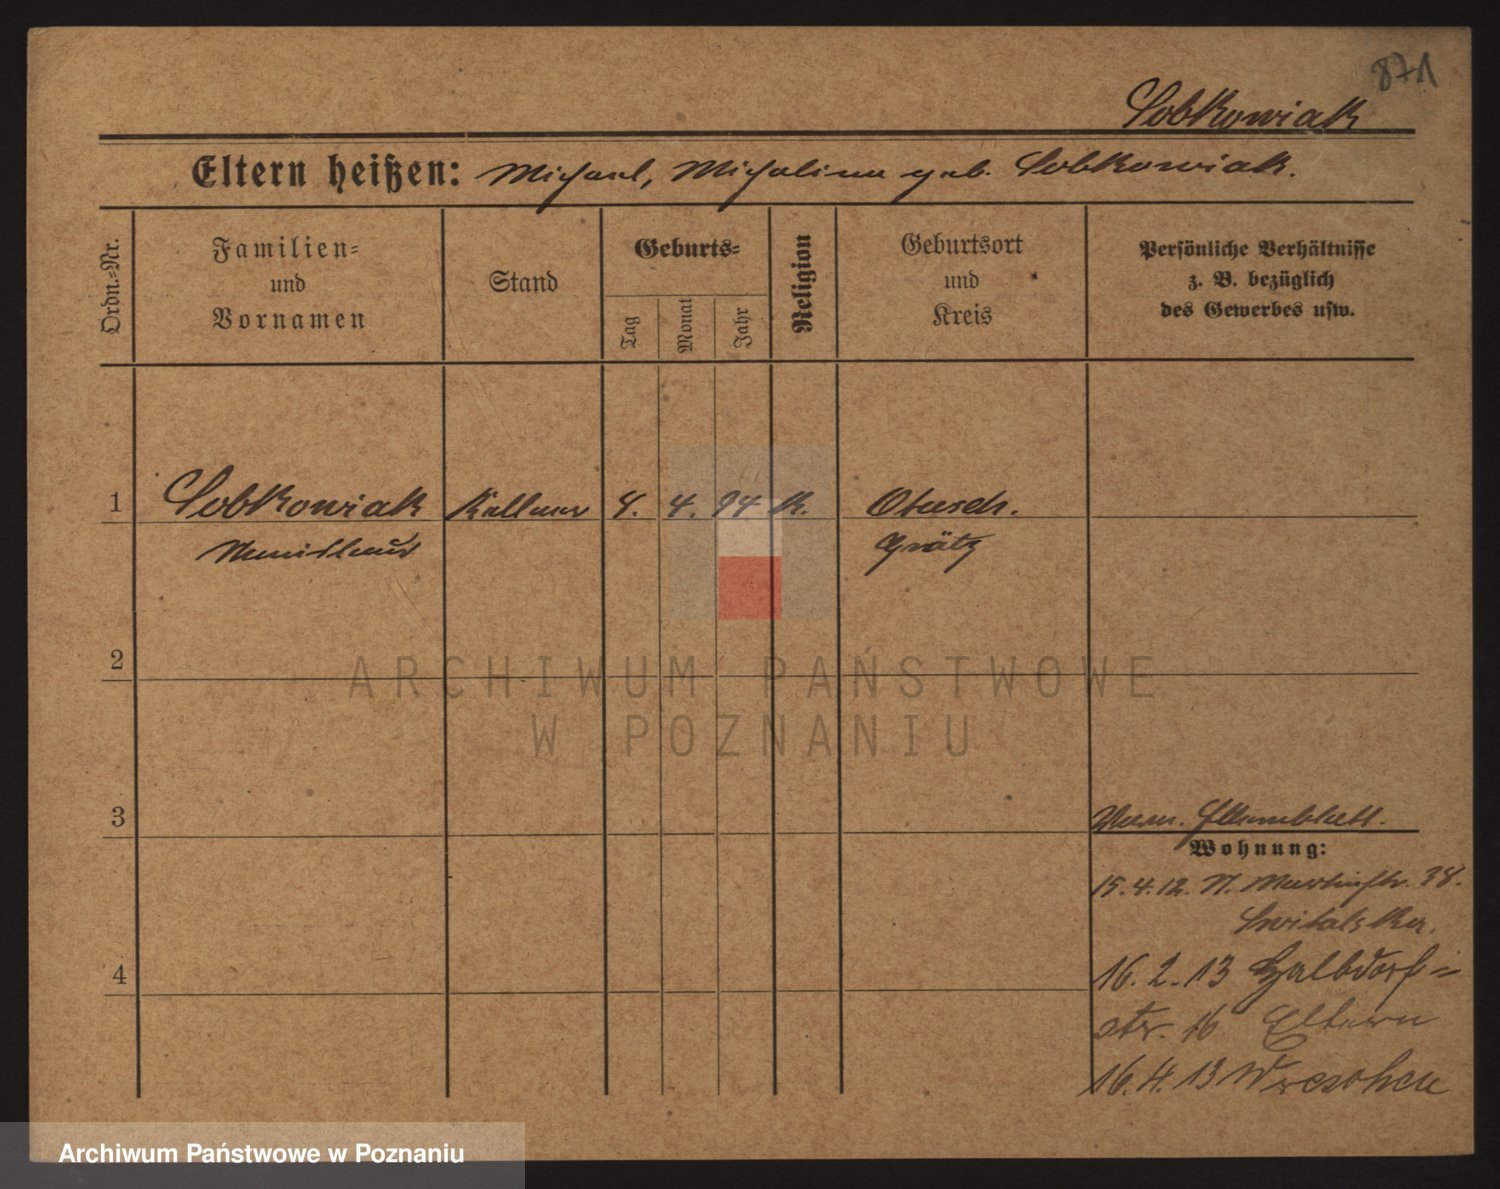 871
Sobkowiak
Eltern heißen: Michael, Michalina geb. Sobkowiak.
Ordn.-Nr.
Familien-
und
Vornamen
Stand
Geburts-
Tag
Monat
Jahr
Religion
Geburtsort
und
Kreis
Persönliche Verhältnisse
z. B. bezüglich
des Gewerbes usw.
1 Sobkowiak Kellner 4. 94 K. Otusch.
Grätz
2
ARCHIWUM PAŃSTWOWE
W POZNANIU
3
Elternblatt.
Wohnung:
15.4.12. Martinstr. 38.
16.2.13 Halbdorf=
str. 16 Eltern
16.4.13 Wreschen
4
Archiwum Państwowe w Poznaniu